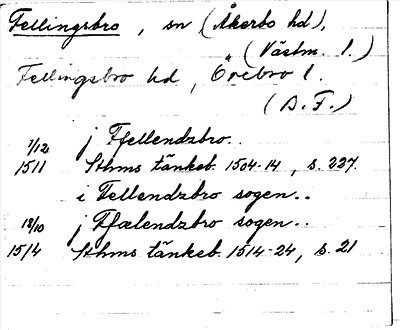 Fellingsbro, sn (Åkerbo hd),
(Västm. l.)
Fellingsbro hd, Örebro l.
(B.F.)
7/12 j Ffellendzbro..
1511 Sthms tänkeb. 1504-14, s. 227.
i Fellendzbro sogen..
18/10 j Ffælendzbro sogen..
1514 Sthms tänkeb. 1514-24, s. 21